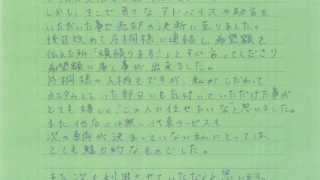 しかし、そこで色々なアドバイスや助言を
いただいた事で売却の決断に至りました。
後日改めて片桐様に連絡し、希望額を
伝えた所「頑張ります!」と言ってくださり
希望額に届く事が出来ました。
片桐様の人柄もですが、私がこだわって
カスタムしていた部分にも気付いていただけた事が
とても嬉しく"この人に任せたいな"と思いました。
また他店には無い代車サービスも
次の車輌が決まっていない私にとっては、
とても魅力的なものでした。
また次も利用させていただくと思います。